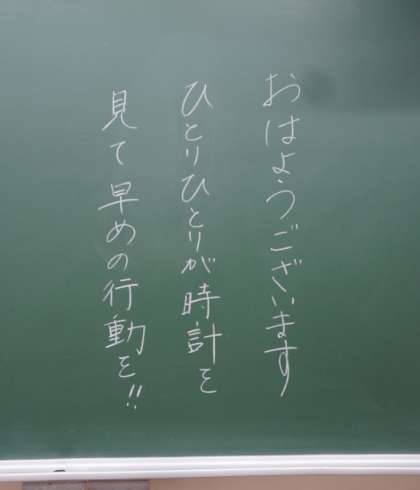 おはようございます
ひとりひとりが時計を
見て早めの行動を!!